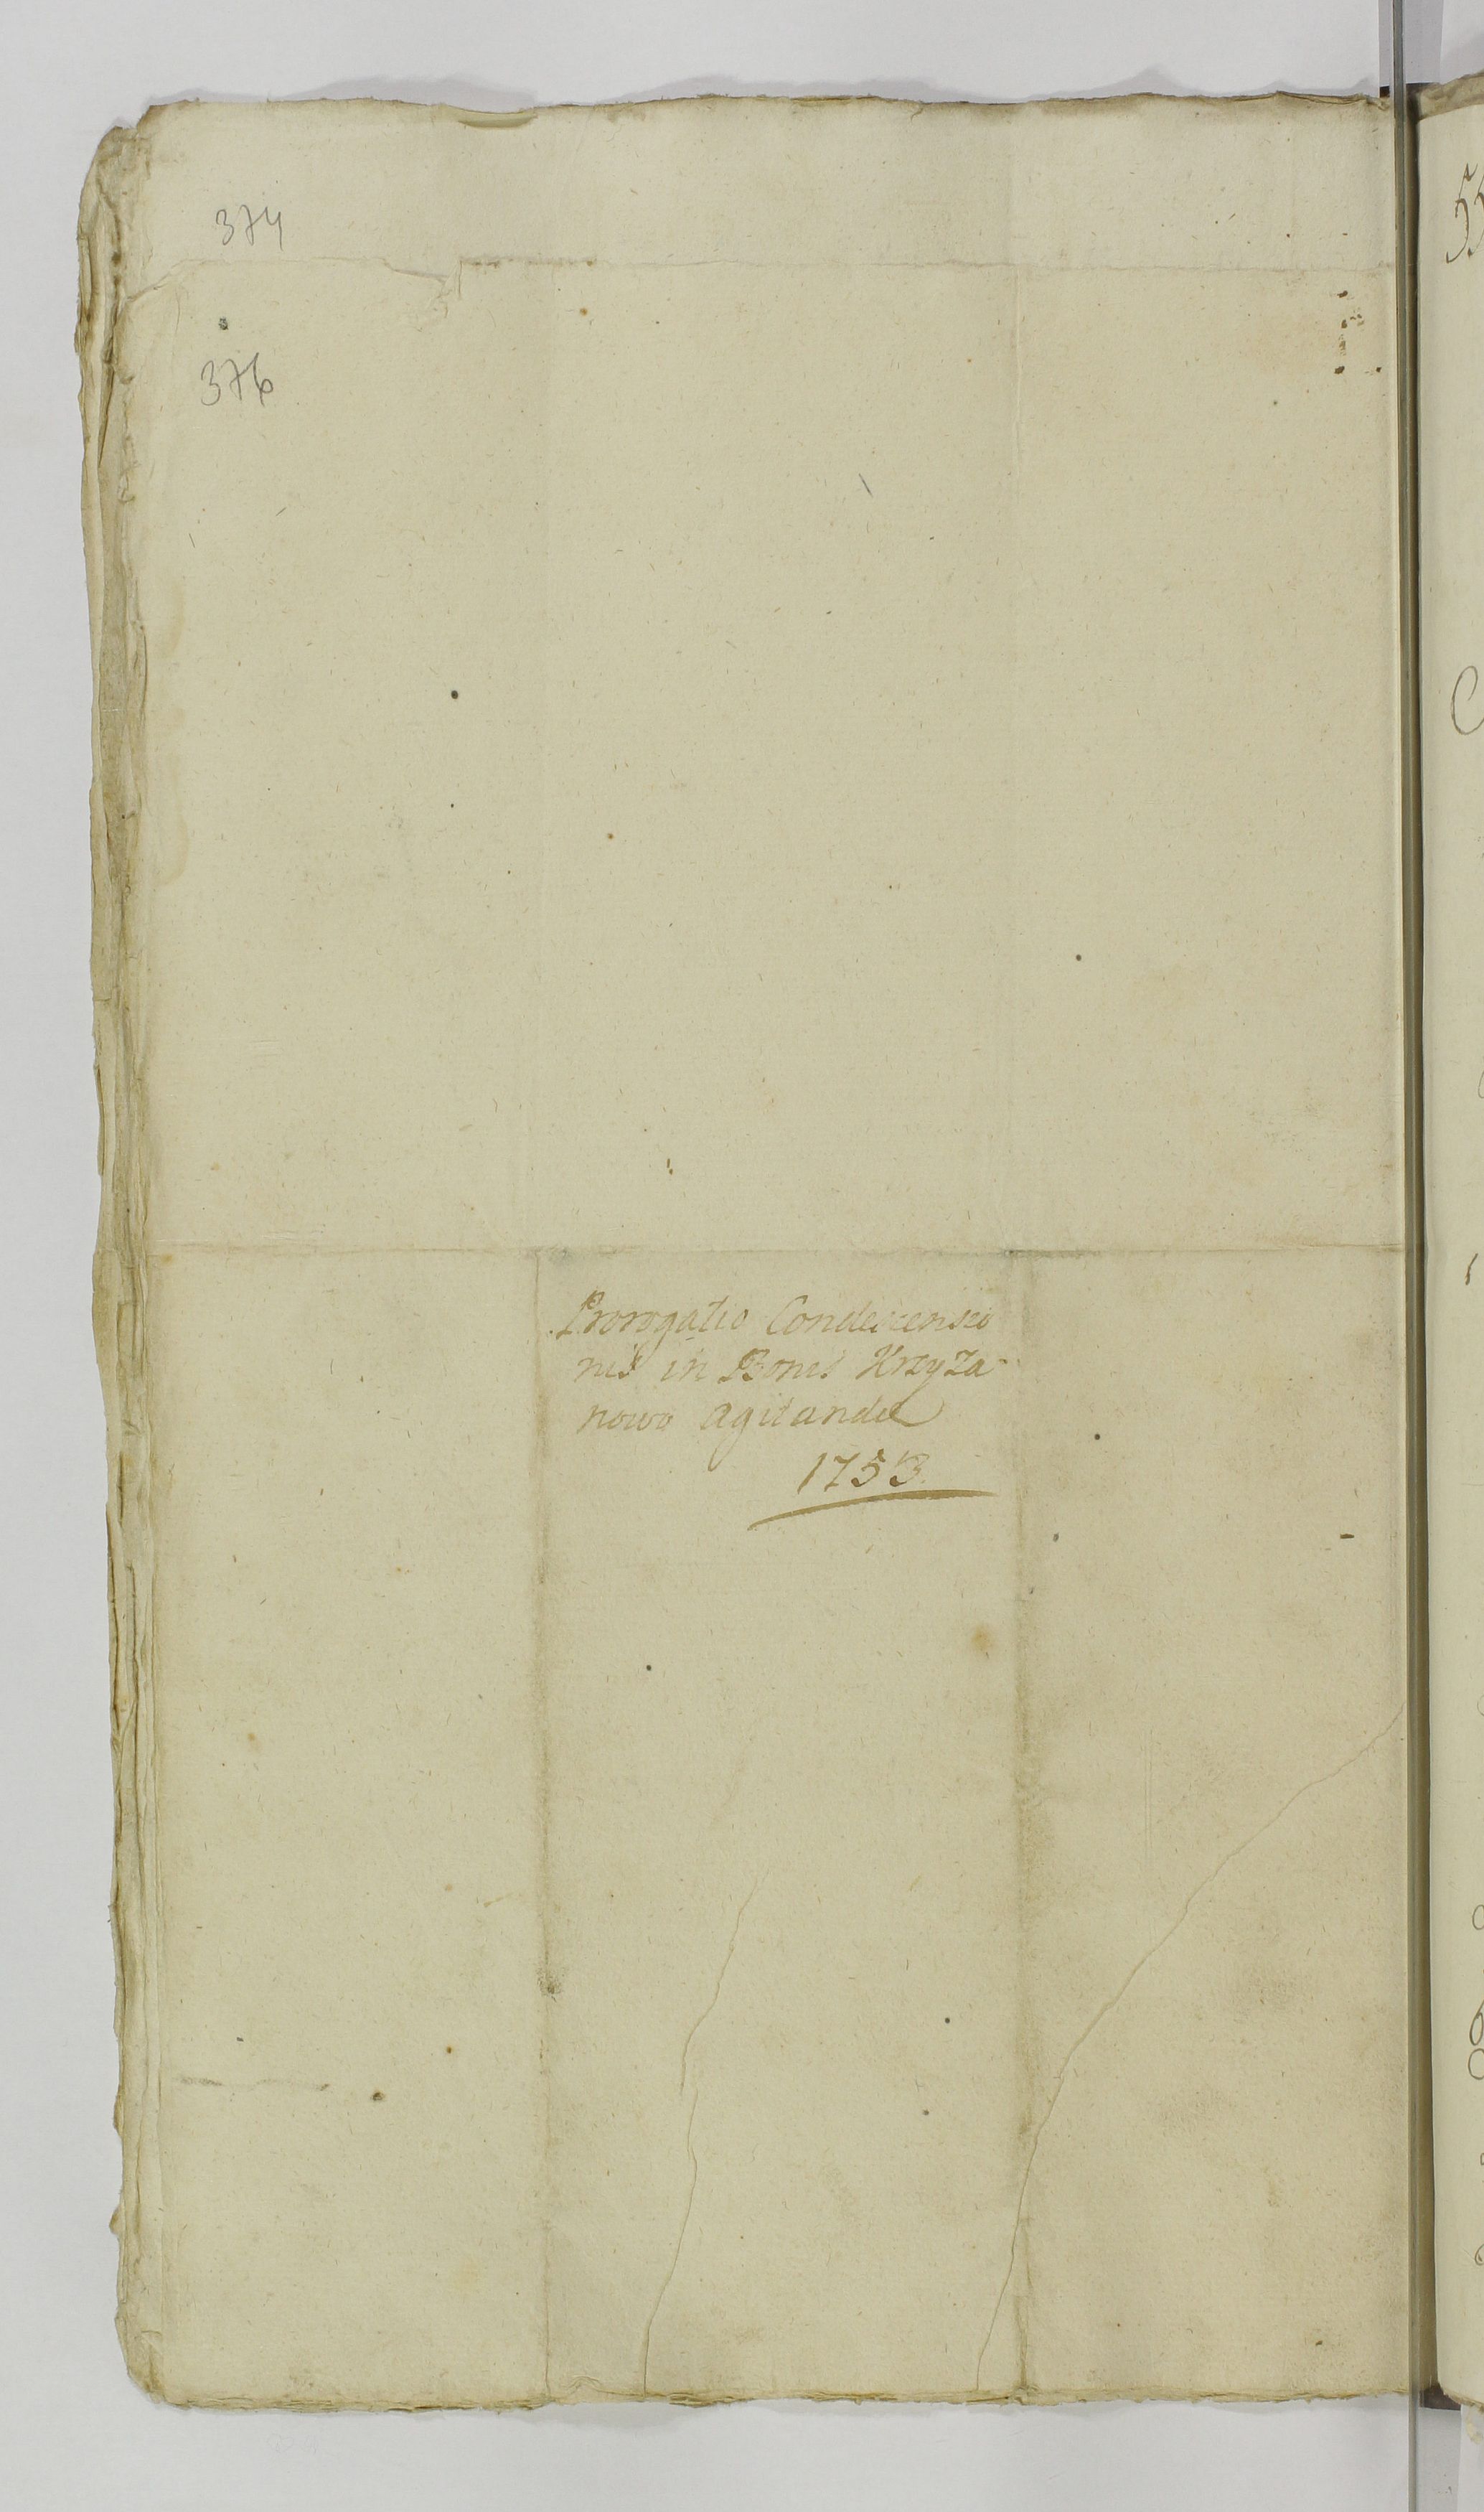 374
376
Prorogatio Condescensio
nis in Bonis Krzyża-
nowo agitandæ
1753.